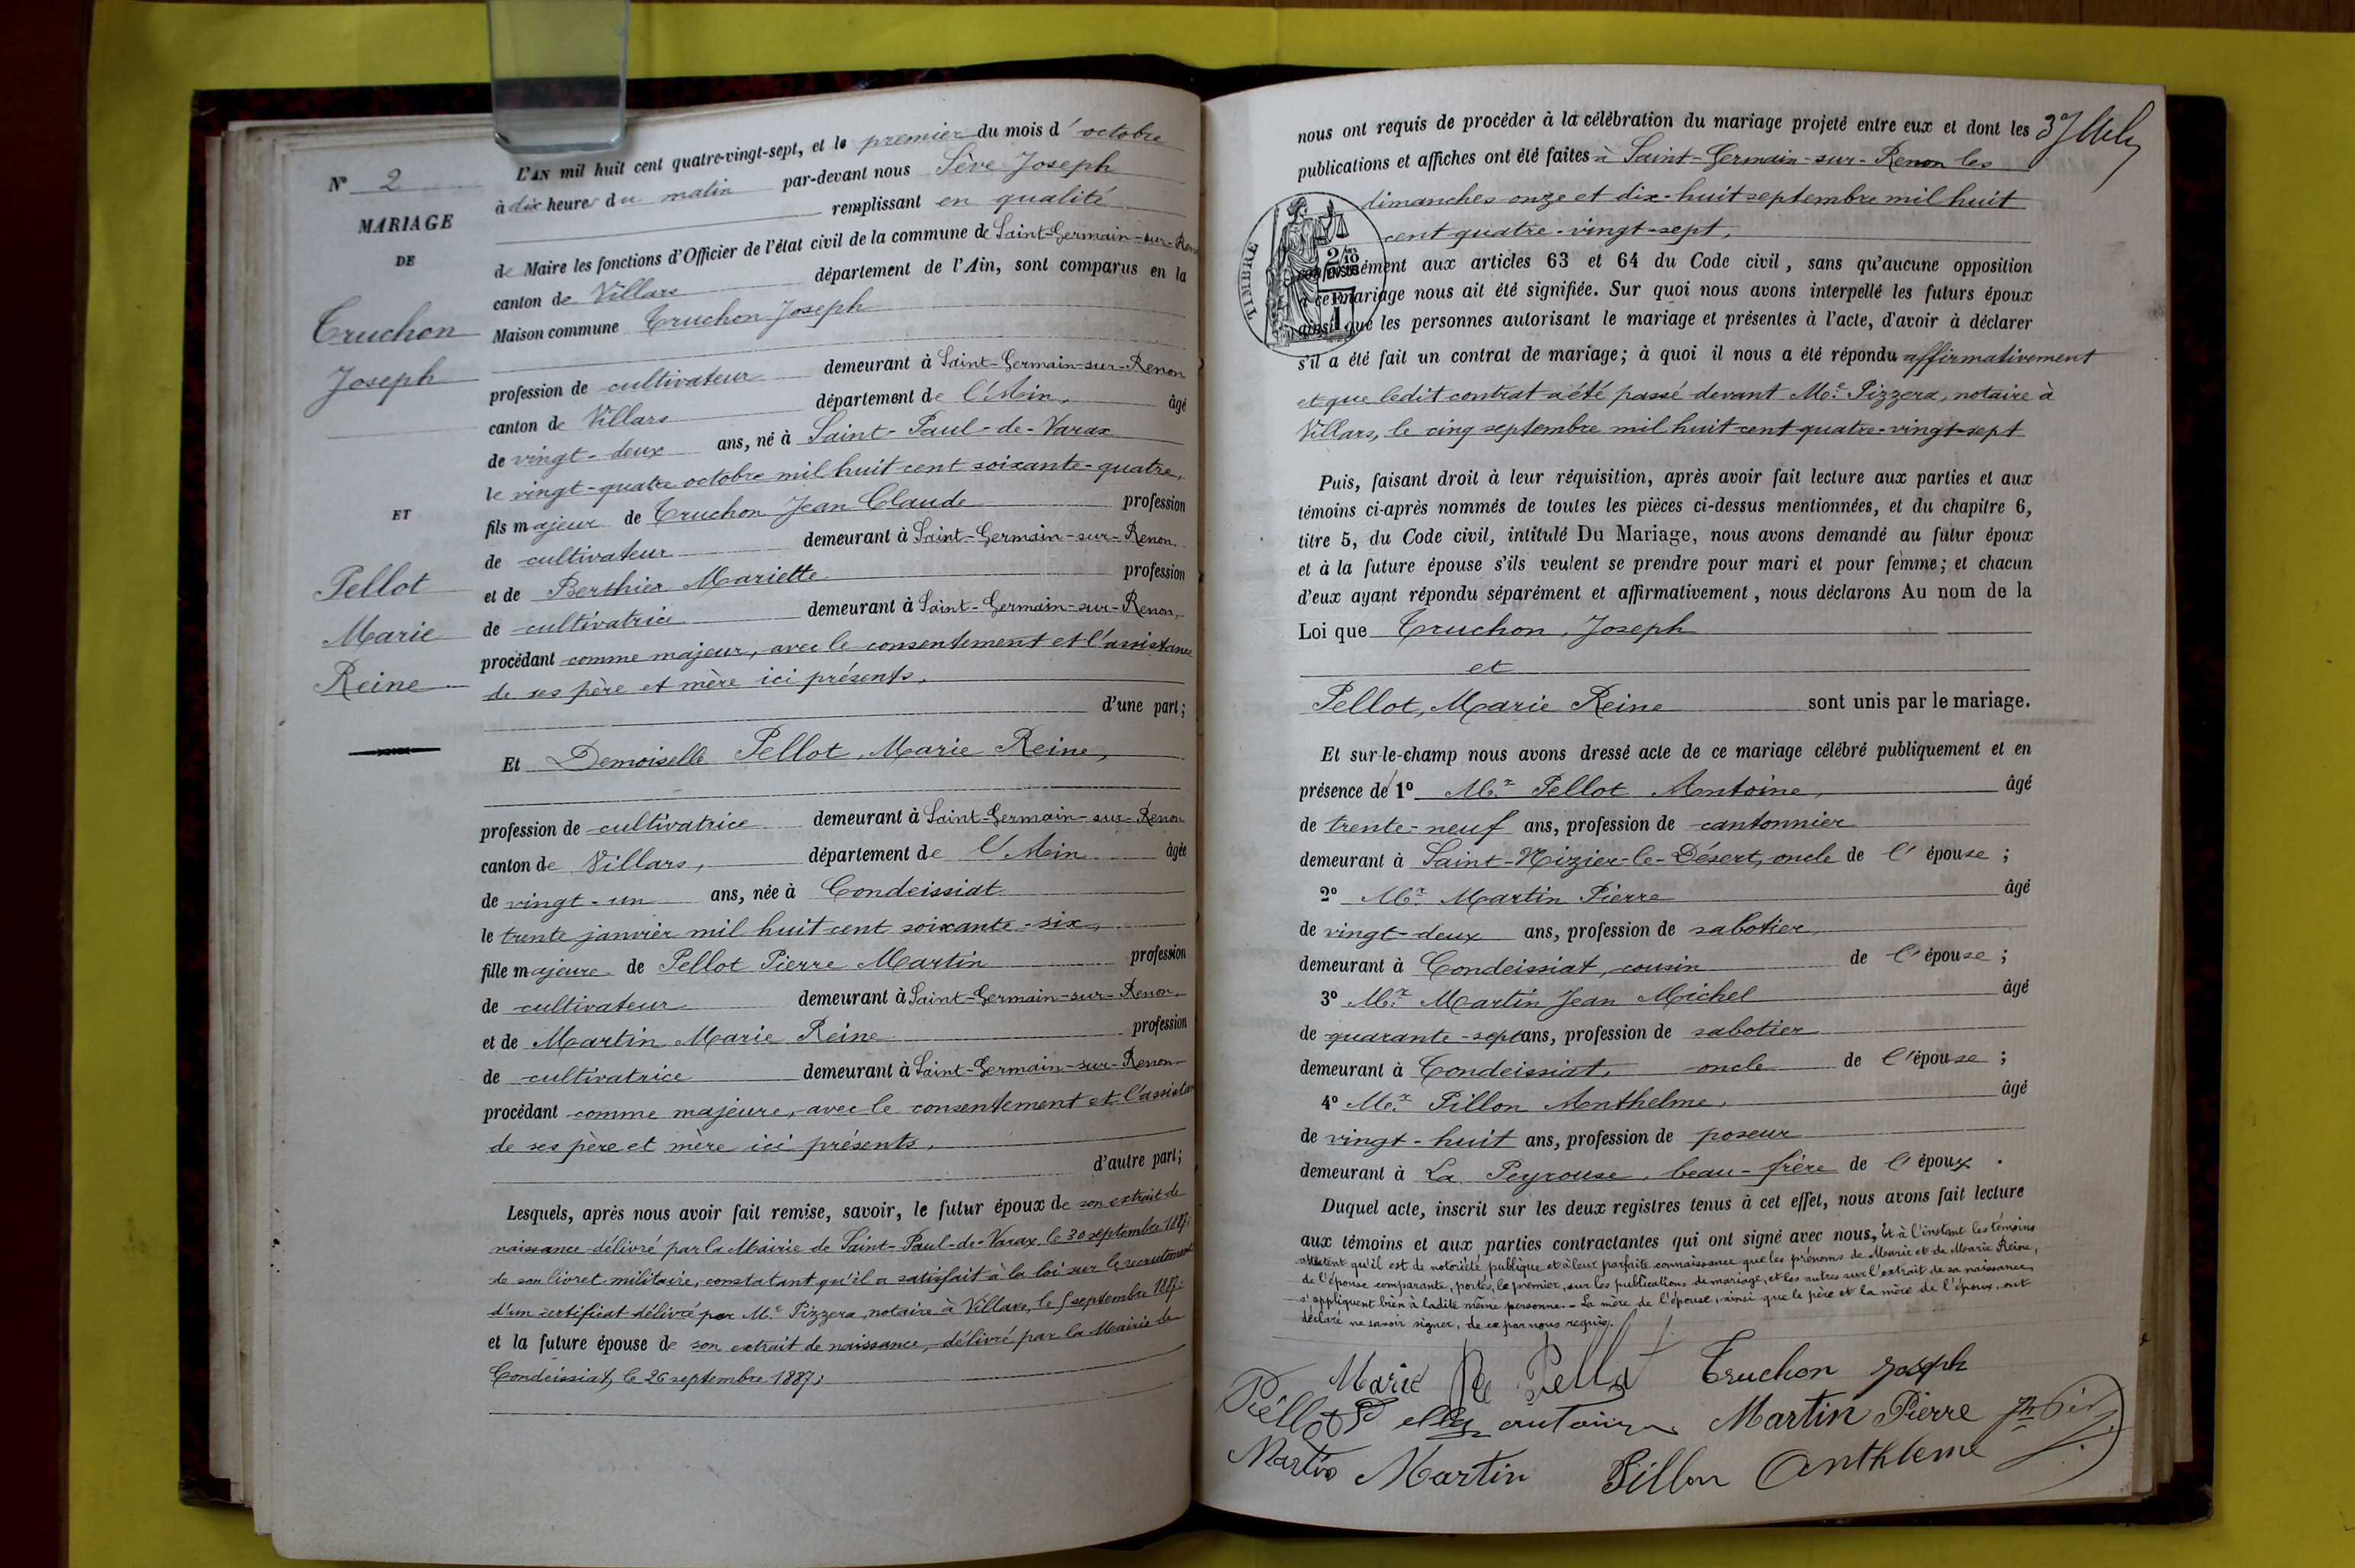 N° 2
MARIAGE
DE
Truchon
Joseph
ET
Pellot
Marie
Reine
L'AN mil huit cent quatre-vingt-sept, et le premier du mois d'octobre
à dix heures du matin par-devant nous Sève Joseph
remplissant en qualité
de Maire les fonctions d'Officier de l'état civil de la commune de Saint-Germain-sur-Renon
canton de Villars département de l'Ain, sont comparus en la
Maison commune Truchon Joseph
profession de cultivateur demeurant à Saint-Germain-sur-Renon
canton de Villars département de l'Ain, âgé
de vingt-deux ans, né à Saint-Paul-de-Varax
le vingt-quatre octobre mil huit cent soixante-quatre,
fils majeur de Truchon Jean Claude profession
de cultivateur demeurant à Saint-Germain-sur-Renon,
et de Berthier Mariette profession
de cultivatrice demeurant à Saint-Germain-sur-Renon,
procédant comme majeur, avec le consentement et l'assistance
de ses père et mère ici présents,
d'une part;
Et Demoiselle Pellot, Marie Reine,
profession de cultivatrice demeurant à Saint-Germain-sur-Renon
canton de Villars, département de l'Ain âgée
de vingt-un ans, née à Condeissiat
le trente janvier mil huit cent soixante-six,
fille majeure de Pellot Pierre Martin profession
de cultivateur demeurant à Saint-Germain-sur-Renon,
et de Martin Marie Reine profession
de cultivatrice demeurant à Saint-Germain-sur-Renon
procédant comme majeure, avec le consentement et l'assistan
de ses père et mère ici présents,
d'autre part;
Lesquels, après nous avoir fait remise, savoir, le futur époux de son extrait de
naissance délivré par la Mairie de Saint-Paul-de-Varax, le 30 septembre 1887;
de son livret militaire, constatant qu'il a satisfait à la loi sur le recrutement
d'un certificat délivré par Me Pizzera, notaire à Villars, le 5 septembre 1887;
et la future épouse de son extrait de naissance, délivré par la Mairie de
Condeissiat, le 26 septembre 1887;
nous ont requis de procéder à la célébration du mariage projeté entre eux et dont les
publications et affiches ont été faites à Saint-Germain-sur-Renon les
dimanches onze et dix-huit septembre mil huit
cent quatre-vingt-sept,
TIMBRE
conformément aux articles 63 et 64 du Code civil, sans qu'aucune opposition
à ce mariage nous ait été signifiée. Sur quoi nous avons interpellé les futurs époux
ainsi que les personnes autorisant le mariage et présentes à l'acte, d'avoir à déclarer
s'il a été fait un contrat de mariage; à quoi il nous a été répondu affirmativement
et que ledit contrat a été passé devant Me Pizzera, notaire à
Villars, le cinq septembre mil huit cent quatre-vingt-sept
Puis, faisant droit à leur réquisition, après avoir fait lecture aux parties et aux
témoins ci-après nommés de toutes les pièces ci-dessus mentionnées, et du chapitre 6,
titre 5, du Code civil, intitulé Du Mariage, nous avons demandé au futur époux
et à la future épouse s'ils veulent se prendre pour mari et pour femme; et chacun
d'eux ayant répondu séparément et affirmativement, nous déclarons Au nom de la
Loi que Truchon, Joseph
et
Pellot, Marie Reine sont unis par le mariage.
Et sur-le-champ nous avons dressé acte de ce mariage célébré publiquement et en
présence de 1° Mr Pellot Antoine, âgé
de trente-neuf ans, profession de cantonnier
demeurant à Saint-Nizier-le-Désert, oncle de l'épouse;
2° Mr Martin Pierre âgé
de vingt-deux ans, profession de sabotier
demeurant à Condeissiat, cousin de l'épouse;
3° Mr Martin Jean Michel âgé
de quarante-sept ans, profession de sabotier
demeurant à Condeissiat, oncle de l'épouse;
4° Mr Pillon Anthelme, âgé
de vingt-huit ans, profession de poseur
demeurant à La Peyrouse, beau-frère de l'époux.
Duquel acte, inscrit sur les deux registres tenus à cet effet, nous avons fait lecture
aux témoins et aux parties contractantes qui ont signé avec nous, Et à l'instant les témoins
attestent qu'il est de notoriété publique et à leur parfaite connaissance que les prénoms de Marie et de Marie Reine,
de l'épouse comparante, portés, le premier, sur les publications de mariage, et les autres sur l'extrait de sa naissance,
s'appliquent bien à ladite même personne. - La mère de l'épouse, ainsi que le père et la mère de l'époux, ont
déclaré ne savoir signer, de ce par nous requis.
Marie Re Pellot Truchon Joseph
Pellot antoine Martin Pierre
Martin Martin Pillon Anthleme